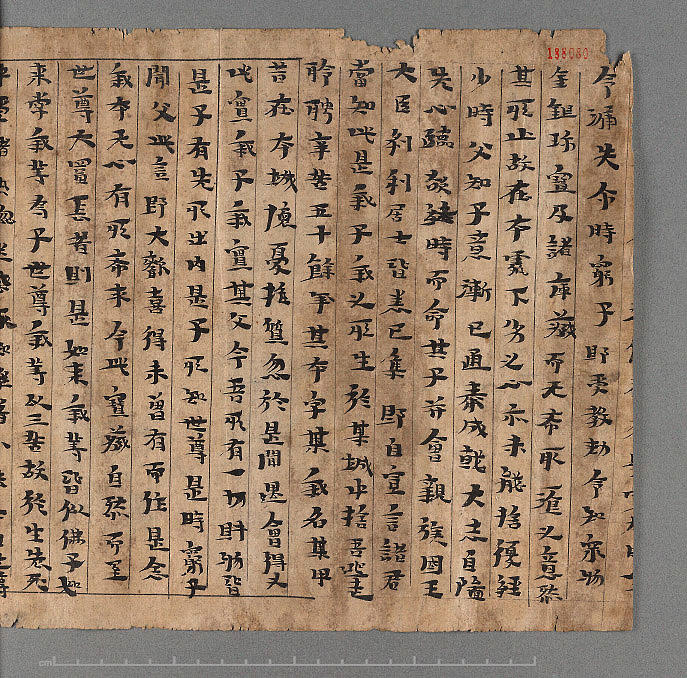 188080
令漏失尒時窮子即受教勑令知眾物
金銀珍寶及諸庫藏而无希取一飡之意然
其所止故在本處下劣之心亦未能捨復經
少時父知子意漸已通泰成就大志自鄙
先心臨欲終時而命其子并會親族國王
大臣刹利居士皆悉已集即自宣言諸君
當知此是我子我之所生於某城中捨吾逃走
聆聘辛苦五十餘年其本字某我名某甲
昔在本城懷憂推覓忽於是間遇會得之
此實我子我實其父今吾所有一切財物皆
是子有先所出內是子所知世尊是時窮子
聞父此言即大歡喜得未曾有而作是念
我本无心有所希求今此寶藏自然而至
世尊大富長者則是如來我等皆似佛子如
來我等為子世尊我等以三苦故於生死
中受諸熱惱迷惑无知樂著小法今日世尊
cm